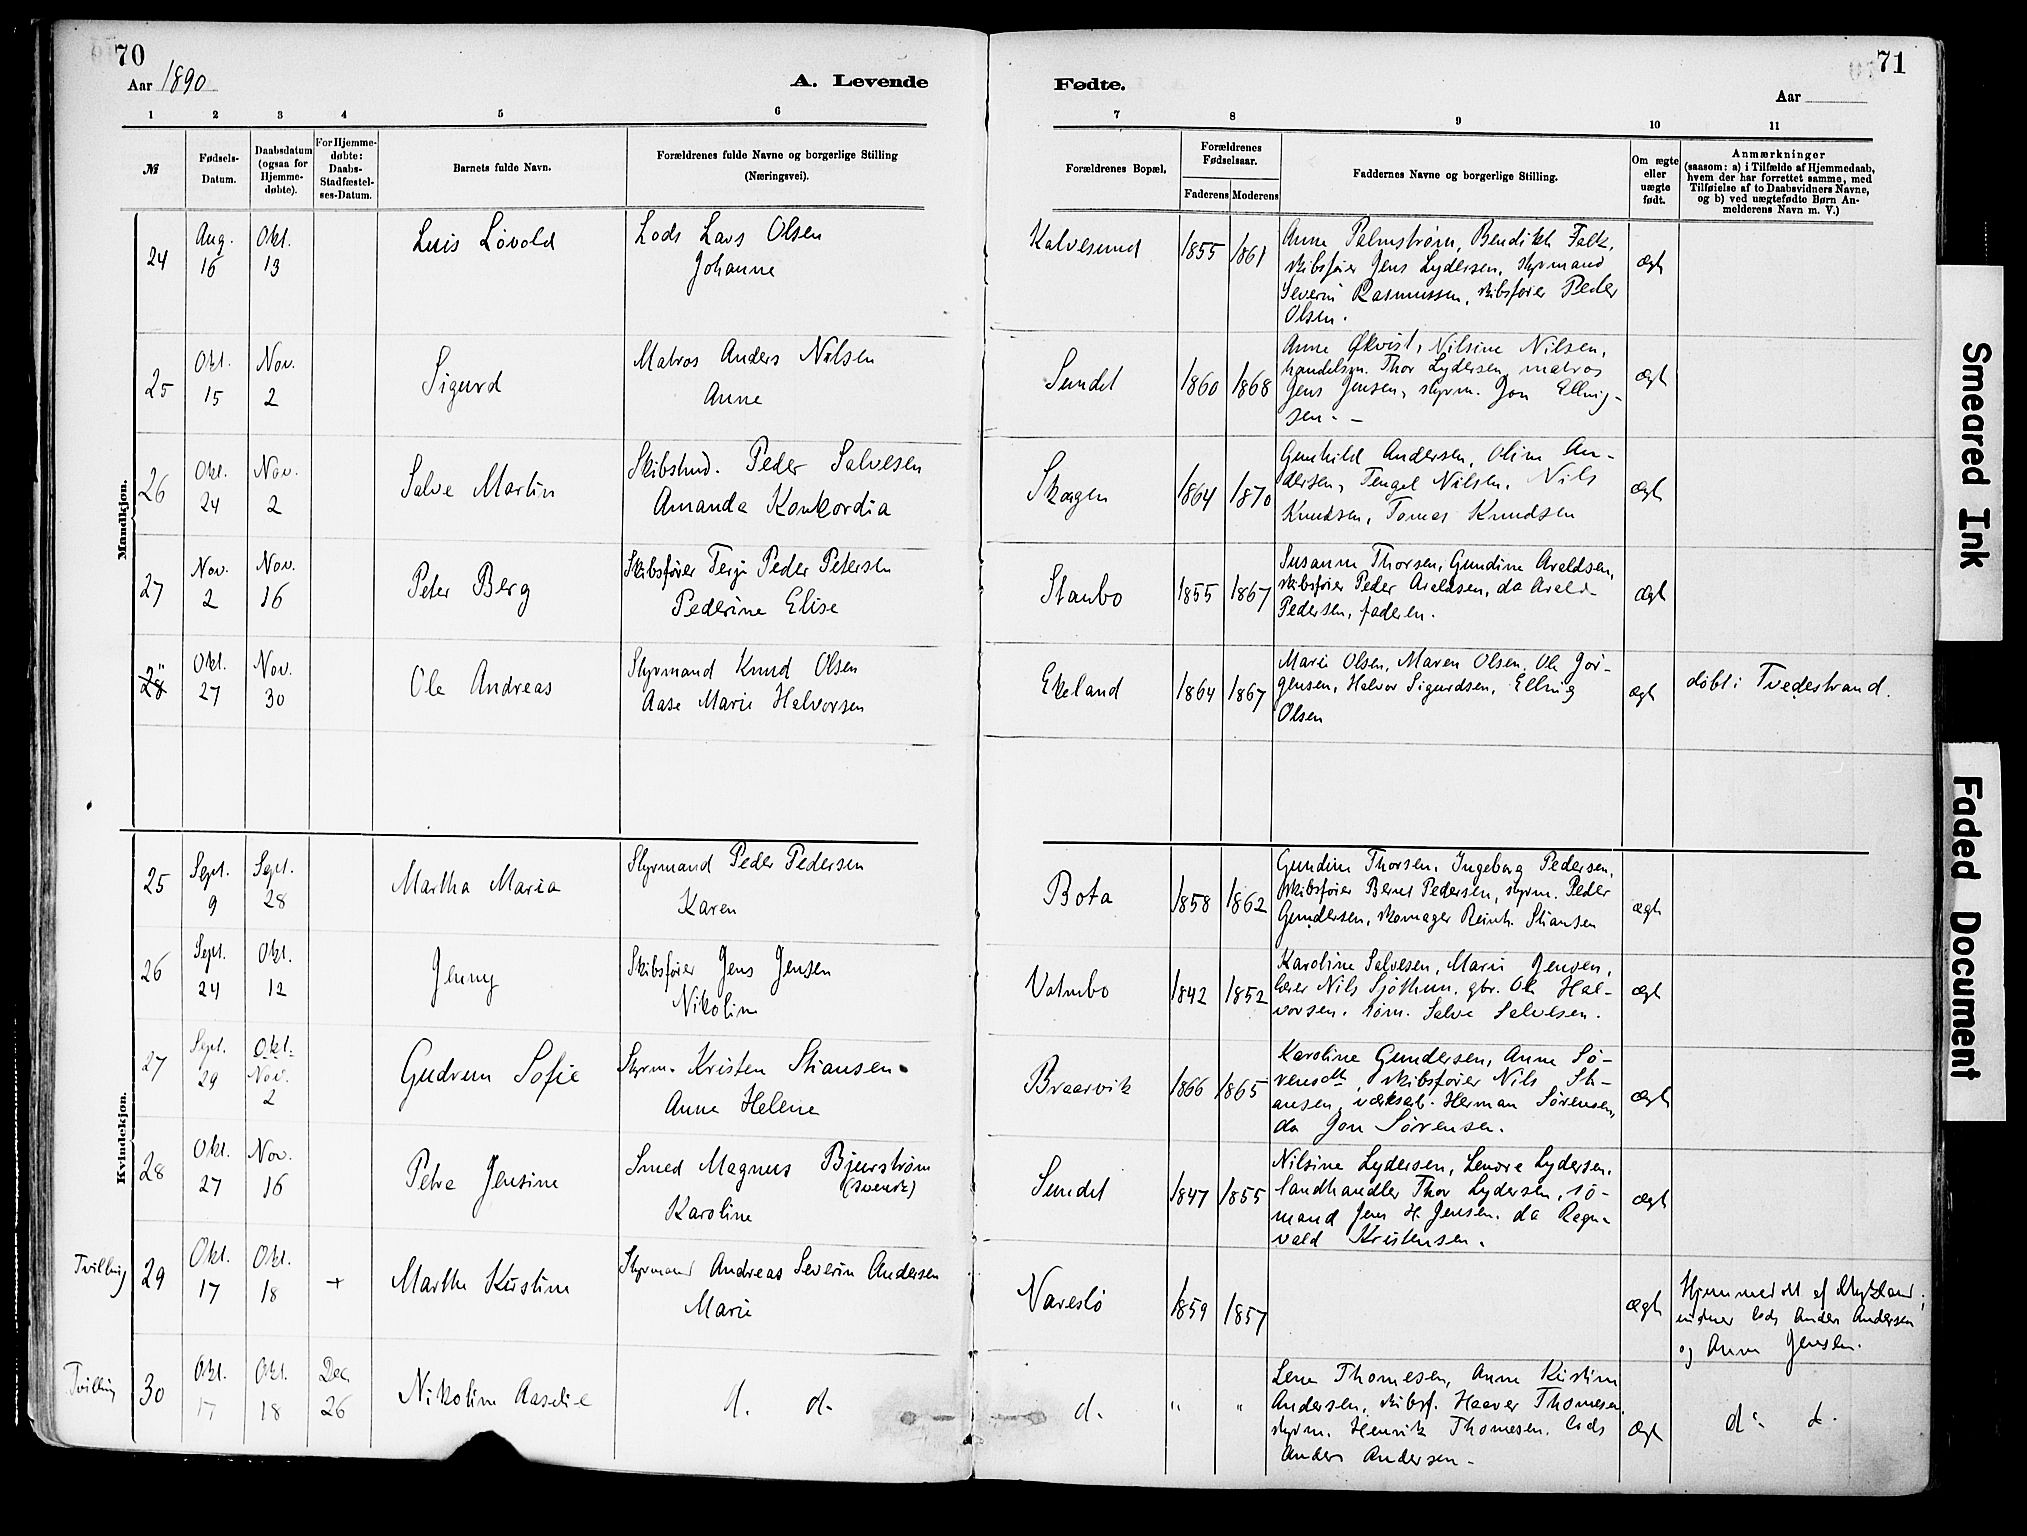 70
Aar 1890
A. Levende
1 2 3 4 5 6
№
Fødsels-
Datum.
Daabsdatum
(ogsaa for
Hjemme-
døbte).
For Hjemme-
døbte:
Daabs-
Stadfæstel-
ses-Datum.
Barnets fulde Navn.
Forældrenes fulde Navne og borgerlige Stilling
(Næringsvei).
Mandkjøn.
24
Aug.
16
Okt.
13
Luis Løvold
Lods Lars Olsen
Johanne
25
Okt.
15
Nov.
2
Sigurd
Matros Anders Nilsen
Anne
26
Okt.
24
Nov.
2
Salve Martin
Skibstmd. Peder Salvesen
Amanda Konkordia
27
Nov.
2
Nov.
16
Peter Berg
Skibsfører Terje Peder Petersen
Pederine Elise
28
Okt.
27
Nov.
30
Ole Andreas
Styrmand Knud Olsen
Aase Marie Halvorsen
Kvindekjøn.
25
Sept.
9
Sept.
28
Martha Maria
Styrmand Peder Pedersen
Karen
26
Sept.
24
Okt.
12
Jenny
Skibsfører Jens Jensen
Nikoline
27
Sept.
29
Okt.
Nov.
2
Gudrun Sofie
Styrm. Kristen Stiansen
Anne Helene
28
Okt.
27
Nov.
16
Petra Jensine
Smed Magnus Bjurstrøm
(svensk)
Karoline
Tvilling
29
Okt.
17
Okt.
18
+
Marthe Kirstine
Styrmand Andreas Severin Andersen
Marie
Tvilling
30
Okt.
17
Okt.
18
Dec.
26
Nikoline Aaselie
d. d.
71
Fødte.
Aar
7 8 9 10 11
Forældrenes Bopæl,
Forældrenes
Fødselsaar.
Faderens
Moderens
Faddernes Navne og borgerlige Stilling.
Om ægte
eller
uægte
født.
Anmærkninger
(saasom: a) i Tilfælde af Hjemmedaab,
hvem der har forrettet samme, med
Tilføielse af to Daabsvidners Navne,
og b) ved uægtefødte Børn An-
melderens Navn m. V.)
Kalvesund
1855
1861
Anne Palmstrøm, Bendikte Falk,
skibsfører Jens Lydersen, styrmand
Severin Rasmussen, skibsfører Peder
Olsen.
ægt
Sundet
1860
1868
Anne Økvist, Nilsine Nilsen,
handelsm. Thor Lydersen, matros
Jens Jensen, styrm. Jon Elling-
sen. -
ægt
Skagen
1864
1870
Gunhild Andersen, Oline An-
dersen, Tengel Nilsen, Nils
Knudsen, Tomas Knudsen
ægt
Staubo
1855
1867
Susanne Thorsen, Gundine Araldsen,
skibsfører Peder Araldsen, do Arald
Pedersen, faderen.
ægt
Ekeland
1864
1867
Marie Olsen, Maren Olsen, Ole Jør-
gensen, Halvor Sigurdsen, Elling
Olsen
ægt
døbt i Tvedestrand.
Bota
1858
1862
Gundine Thorsen, Ingeborg Pedersen,
skibsfører Bernt Pedersen, styrm. Peder
Gundersen, skomager Reinh. Stiansen
ægt
Vatnebo
1842
1852
Karoline Salvesen, Marie Jensen,
lærer Nils Sjøthun, gbr. Ole Hal-
vorsen, tøm. Salve Salvesen.
ægt
Braarvik
1866
1865
Karoline Gundersen, Anne Sø-
rensdt., skibsfører Nils Sti-
ansen, værksarb. Herman Sørensen,
do Jon Sørensen.
ægt
Sundet
1847
1855
Nilsine Lydersen, Lenore Lydersen,
landhandler Thor Lydersen, sø-
mand Jens H. Jensen, do Ragn-
vald Kristensen.
ægt
Narestø
1859
1857
ægt
Hjemmedøbt af Mykland;
vidner lods Anders Andersen
og Anne Jensen.
d.
" "
Lene Thomesen, Anne Kirstine
Andersen, skibsf. Haaver Thomesen,
styrm. Henrik Thomesen, lods
Anders Andersen -
ægt
do d.
Smeared Ink
Faded Document